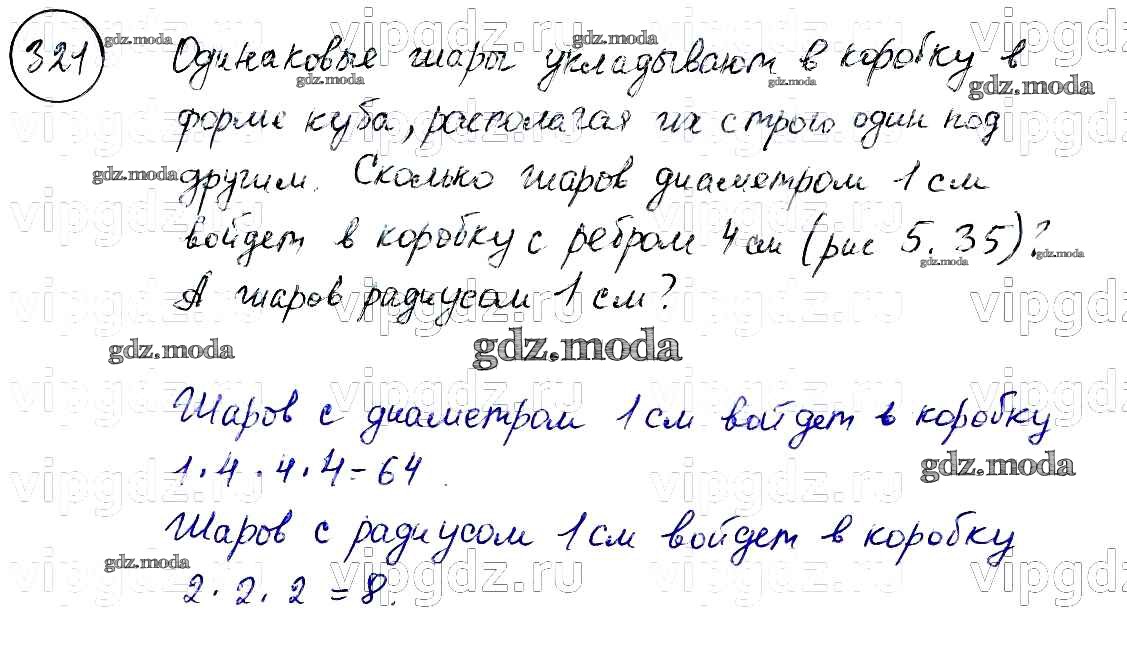 321
Одинаковые шары укладывают в коробку в
форме куба, располагая их строго один под
другим. Сколько шаров диаметром 1 см
войдет в коробку с ребром 4 см (рис 5.35)?
А шаров радиусом 1 см?
Шаров с диаметром 1 см войдет в коробку
1·4·4·4=64.
Шаров с радиусом 1 см войдет в коробку
2·2·2=8.
gdz.moda
vipgdz.ru